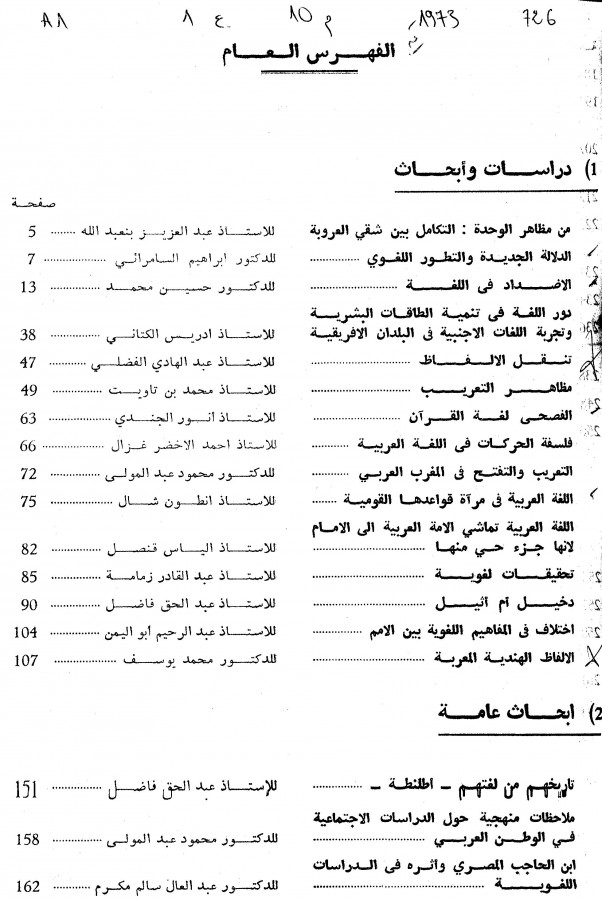 726 1973 م 10 ع 1 A1
الفهرس العام
1) دراسات وأبحاث
صفحة
من مظاهر الوحدة : التكامل بين شقي العروبة للاستاذ عبد العزيز بنعبد الله ........ 5
الدلالة الجديدة والتطور اللغوي ........ للدكتور ابراهيم السامرائي ........ 7
الاضداد فى اللغة ........ للدكتور حسين محمد ........ 13
دور اللغة فى تنمية الطاقات البشرية
وتجربة اللغات الاجنبية فى البلدان الافريقية للاستاذ ادريس الكتاني ........ 38
تنقل الالفاظ ........ للاستاذ عبد الهادي الفضلي ........ 47
مظاهر التعريب ........ للاستاذ محمد بن تاويت ........ 49
الفصحى لغة القرآن ........ للاستاذ أنور الجندي ........ 63
فلسفة الحركات فى اللغة العربية ........ للاستاذ احمد الاخضر غزال ........ 66
التعريب والتفتح فى المغرب العربي ........ للدكتور محمود عبد المولى ........ 72
اللغة العربية فى مرآة قواعدها القومية ........ للاستاذ انطون شال ........ 75
اللغة العربية تماشي الامة العربية الى الامام
لانها جزء حي منها ........ للاستاذ الياس قنصل ........ 82
تحقيقات لغوية ........ للاستاذ عبد القادر زمامة ........ 85
دخيل أم أثيل ........ للاستاذ عبد الحق فاضل ........ 90
اختلاف فى المفاهيم اللغوية بين الامم للاستاذ عبد الرحيم أبو اليمن ........ 104
الالفاظ الهندية المعربة ........ للدكتور محمد يوسف ........ 107
2) ابحاث عامة
تاريخهم من لغتهم ـ اطلنطة ـ ........ للاستاذ عبد الحق فاضل ........ 151
ملاحظات منهجية حول الدراسات الاجتماعية
في الوطن العربي ........ للدكتور محمود عبد المولى ........ 158
ابن الحاجب المصري وأثره فى الدراسات
اللغوية ........ للدكتور عبد العال سالم مكرم ........ 162